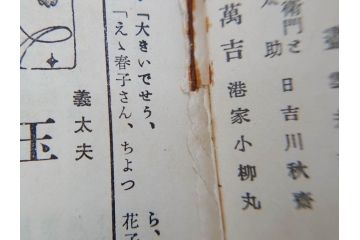 衛門と 日吉川秋齋
太助
萬吉 港家小柳丸
ら、
花子
「大きいでせう、
「えゝ春子さん、ちよつ
義太夫
玉